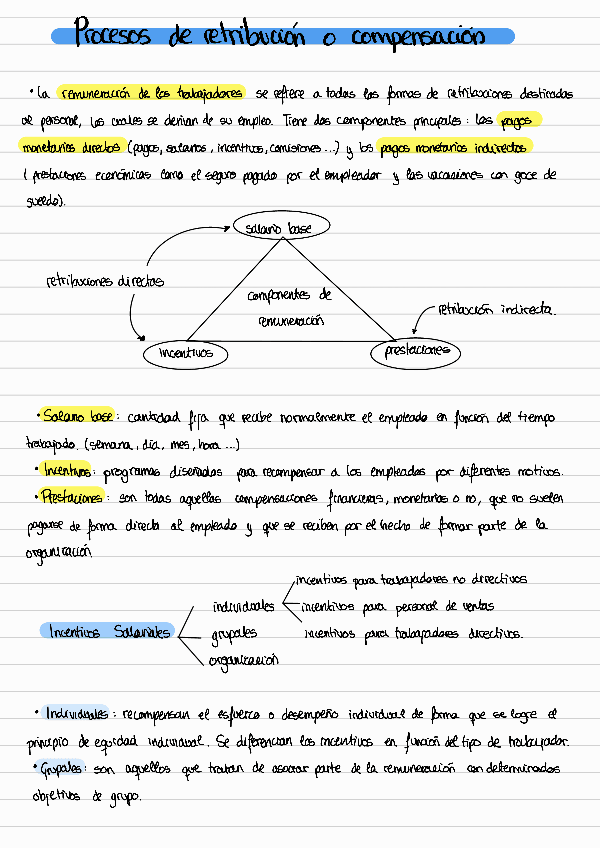 Procesos de retribución o compensación
• La remuneración de los trabajadores se refiere a todas las formas de retribuciones destinadas
al personal, las cuales se derivan de su empleo. Tiene dos componentes principales: los pagos
monetarios directos (pagos, salarios, incentivos, comisiones...) y los pagos monetarios indirectos
(prestaciones económicas como el seguro pagado por el empleador y las vacaciones con goce de
sueldo).
salario base
retribuciones directas
componentes de
remuneración
retribución indirecta.
incentivos
prestaciones
• Salario base: cantidad fija que recibe normalmente el empleado en función del tiempo
trabajado. (semana, día, mes, hora...)
• Incentivos: programas diseñados para recompensar a los empleados por diferentes motivos.
• Prestaciones: son todas aquellas compensaciones financieras, monetarias o no, que no suelen
pagarse de forma directa al empleado y que se reciben por el hecho de formar parte de la
organización
incentivos para trabajadores no directivos
individuales
incentivos para personal de ventas
Incentivos Salariales
grupales
incentivos para trabajadores directivos.
organización
• Individuales: recompensan el esfuerzo o desempeño individual de forma que se logre el
principio de equidad individual. Se diferencian los incentivos en función del tipo de trabajador.
• Grupales: son aquellos que tratan de asociar parte de la remuneración con determinados
objetivos de grupo.